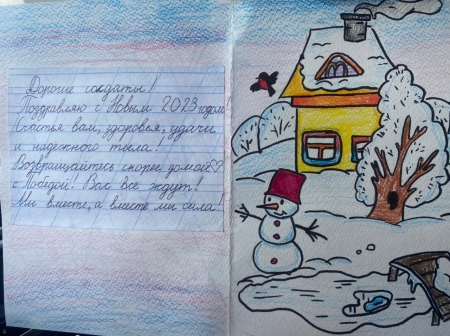 Дорогие солдаты!
Поздравляю с Новым 2023 годом!
Счастья вам, здоровья, удачи
и надежного тыла!
Возвращайтесь скорее домой♡
с Победой! Вас все ждут!
Мы вместе, а вместе мы сила!